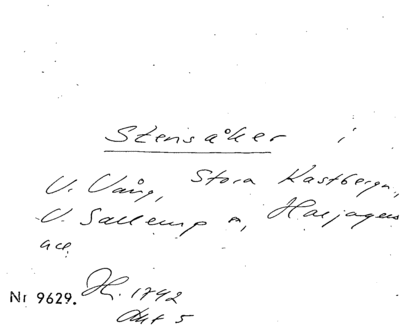 Stensåker i
V. Vång, Stora Kastbergn,
V. Sallerup o, Harjagers
Nr 9629. Hr. 1742
Akt 5